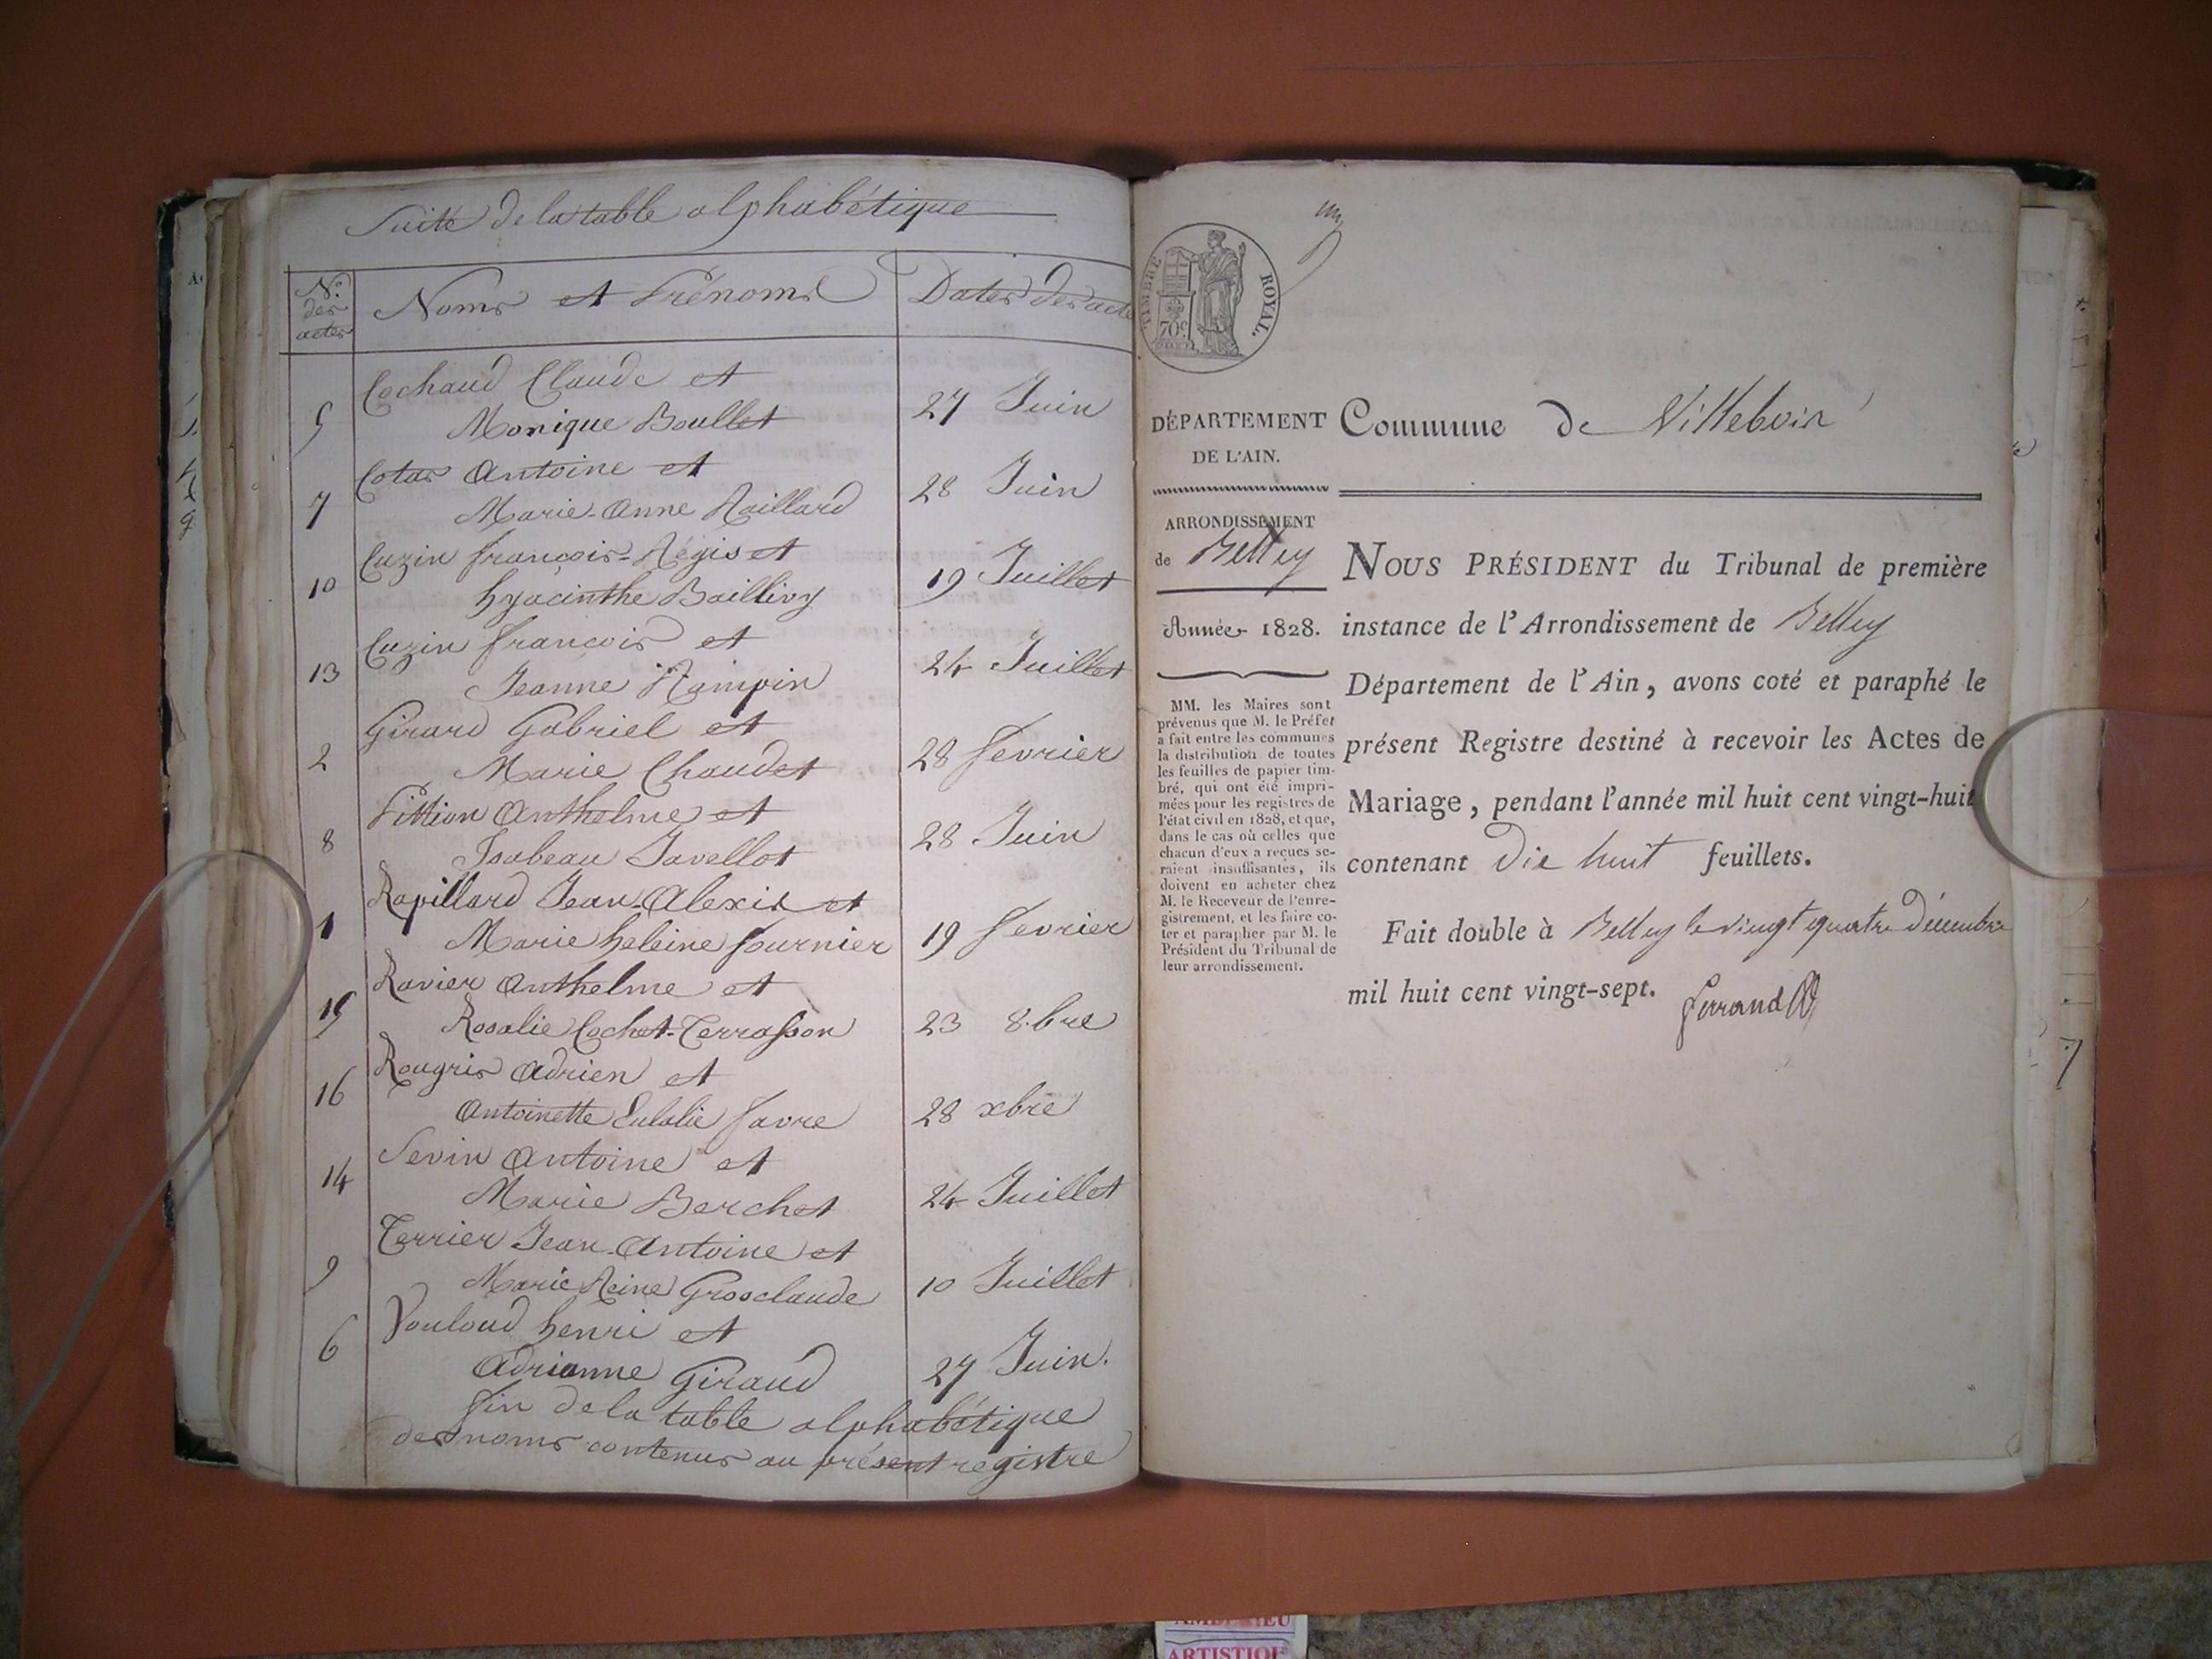 Suite de la table alphabétique
N.º des actes
Noms et Prénoms
Dates des acte
Cochaud Claude et
5 Monique Boullet 27 Juin
Cotas Antoine et
7 Marie-Anne Raillard 28 Juin
Cuzin françois-Régis et
10 hyacinthe Baillivy 19 Juillet
Cuzin françois et
13 Jeanne Rampin 24 Juillet
Girard Gabriel et
2 Marie Chaudet 28 fevrier
Pittion Anthelme et
8 Isabeau Javellot 28 Juin
Rapillard Jean-Alexis et
1 Marie heleine fournier 19 fevrier
Ravier Anthelme et
15 Rosalie Cochet-Terrasson 23 8.bre
Rougris Adrien et
16 Antoinette Eulalie favre 28 xbre
Sevin Antoine et
14 Marie Berchet 24 Juillet
Terrier Jean-Antoine et
9 Marie Reine Grosclaude 10 Juillet
Vouloud henri et
6 Adrianne Giraud 27 Juin.
fin de la table alphabétique
des noms contenus au présent registre
TIMBRE ROYAL.
70c
DÉPARTEMENT
DE L'AIN.
Commune de Villebois
ARRONDISSEMENT
de Belley
Année 1828.
MM. les Maires sont
prévenus que M. le Préfet
a fait entre les communes
la distribution de toutes
les feuilles de papier tim-
bré, qui ont été impri-
mées pour les registres de
l'état civil en 1828, et que,
dans le cas où celles que
chacun d'eux a reçues se-
raient insuffisantes, ils
doivent en acheter chez
M. le Receveur de l'enre-
gistrement, et les faire co-
ter et parapher par M. le
Président du Tribunal de
leur arrondissement.
NOUS PRÉSIDENT du Tribunal de première
instance de l'Arrondissement de Belley
Département de l'Ain, avons coté et paraphé le
présent Registre destiné à recevoir les Actes de
Mariage, pendant l'année mil huit cent vingt-huit
contenant Dix huit feuillets.
Fait double à Belley le vingt quatre Décembre
mil huit cent vingt-sept.
ARTISTIQUE